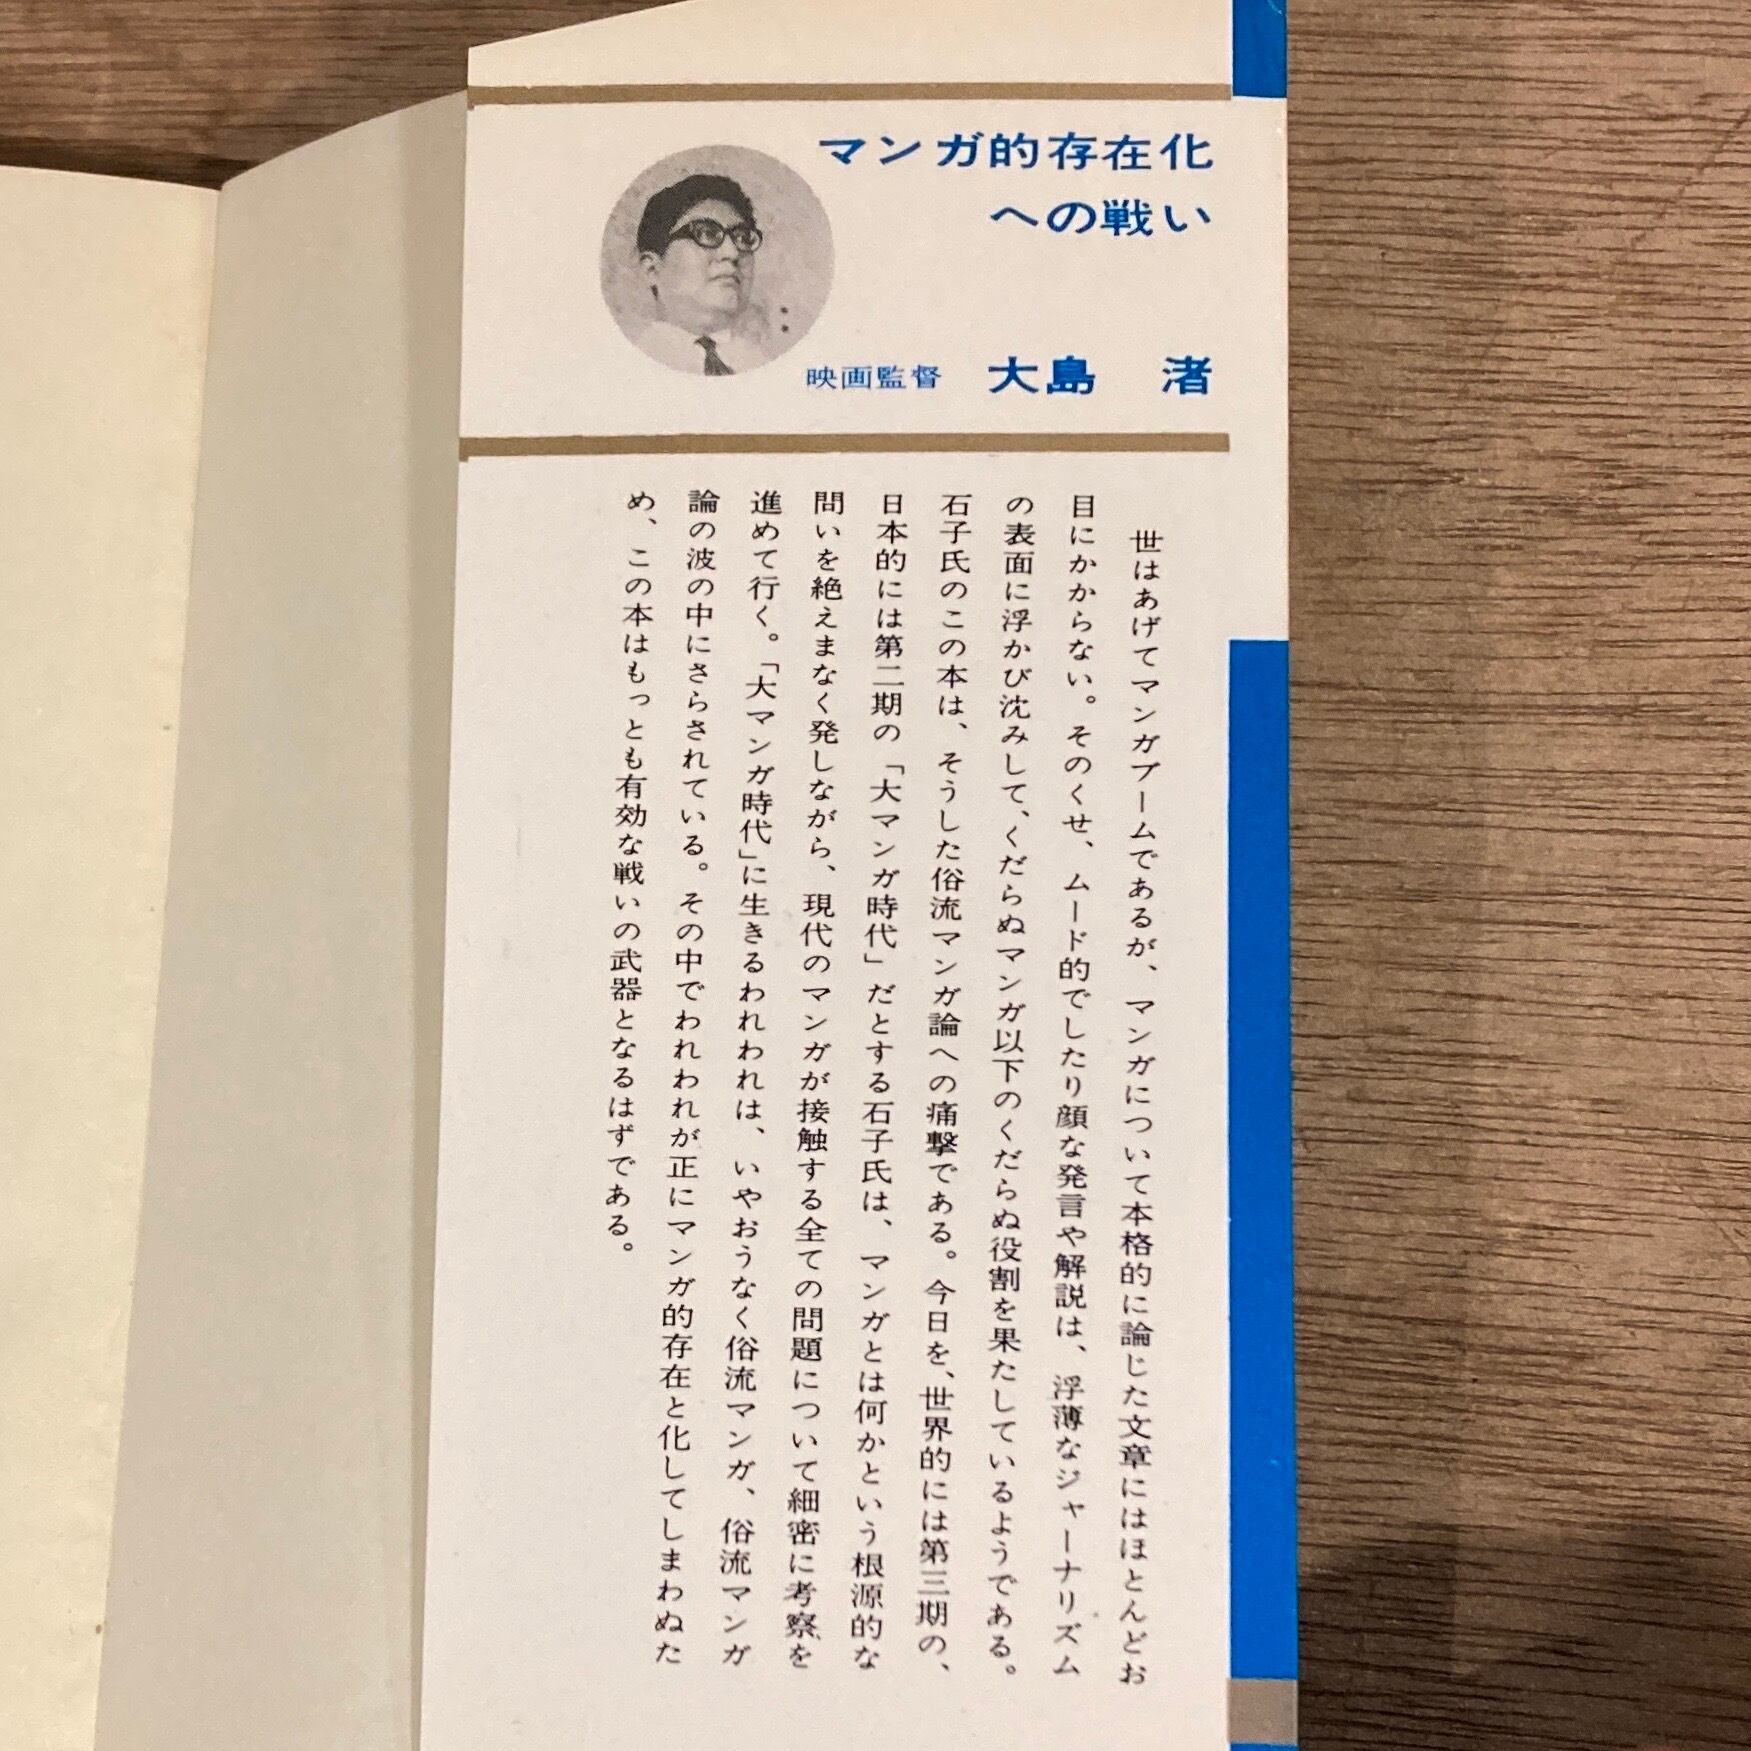 マンガ的存在化
への戦い
映画監督　大島　渚
世はあげてマンガブームであるが、マンガについて本格的に論じた文章にはほとんどお
目にかからない。そのくせ、ムード的でしたり顔な発言や解説は、浮薄なジャーナリズム
の表面に浮かび沈みして、くだらぬマンガ以下のくだらぬ役割を果たしているようである。
石子氏のこの本は、そうした俗流マンガ論への痛撃である。今日を、世界的には第三期の、
日本的には第二期の「大マンガ時代」だとする石子氏は、マンガとは何かという根源的な
問いを絶えまなく発しながら、現代のマンガが接触する全ての問題について細密に考察を
進めて行く。「大マンガ時代」に生きるわれわれは、いやおうなく俗流マンガ、俗流マンガ
論の波の中にさらされている。その中でわれわれが正にマンガ的存在と化してしまわぬた
め、この本はもっとも有効な戦いの武器となるはずである。